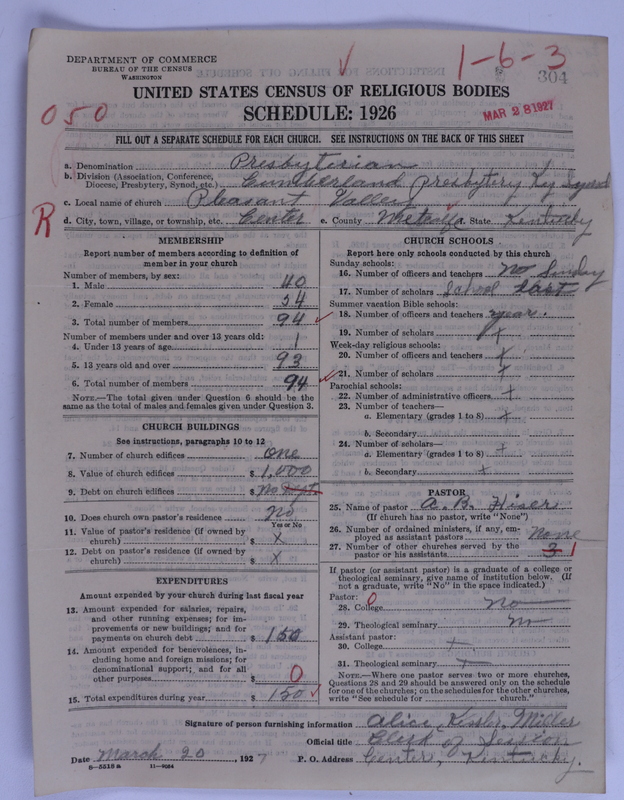 DEPARTMENT OF COMMERCE
BUREAU OF THE CENSUS
WASHINGTON
1-6-3
304
UNITED STATES CENSUS OF RELIGIOUS BODIES
SCHEDULE: 1926
MAR 28 1927
050
FILL OUT A SEPARATE SCHEDULE FOR EACH CHURCH. SEE INSTRUCTIONS ON THE BACK OF THIS SHEET
a. Denomination Presbyterian
b. Division (Association, Conference, Diocese, Presbytery, Synod, etc.) Cumberland Presbytery Ky Synod
c. Local name of church Pleasant Valley
R
d. City, town, village, or township, etc. Center e. County Metcalfe f. State Kentucky
MEMBERSHIP
Report number of members according to definition of
member in your church
Number of members, by sex:
1. Male 40
2. Female 54
3. Total number of members 94
Number of members under and over 13 years old:
4. Under 13 years of age 1
5. 13 years old and over 93
6. Total number of members 94
NOTE.—The total given under Question 6 should be the
same as the total of males and females given under Question 3.
CHURCH BUILDINGS
See instructions, paragraphs 10 to 12
7. Number of church edifices One
8. Value of church edifices $ 1,000
9. Debt on church edifices $ No Dept
10. Does church own pastor's residence No
Yes or No
11. Value of pastor's residence (if owned by
church) $ X
12. Debt on pastor's residence (if owned by
church) $ X
EXPENDITURES
Amount expended by your church during last fiscal year
13. Amount expended for salaries, repairs,
and other running expenses; for im-
provements or new buildings; and for
payments on church debt $ 150
14. Amount expended for benevolences, in-
cluding home and foreign missions; for
denominational support; and for all
other purposes $ 0
15. Total expenditures during year $ 150
CHURCH SCHOOLS
Report here only schools conducted by this church
Sunday schools:
16. Number of officers and teachers No Sunday
17. Number of scholars School last
Summer vacation Bible schools:
18. Number of officers and teachers year.
19. Number of scholars X
Week-day religious schools:
20. Number of officers and teachers X
21. Number of scholars X
Parochial schools:
22. Number of administrative officers X
23. Number of teachers—
a. Elementary (grades 1 to 8) X
b. Secondary
24. Number of scholars—
a. Elementary (grades 1 to 8) X
b. Secondary X
PASTOR
25. Name of pastor A. B. Hiser
(If church has no pastor, write "None")
26. Number of ordained ministers, if any, em-
ployed as assistant pastors None
27. Number of other churches served by the
pastor or his assistants 3 1
If pastor (or assistant pastor) is a graduate of a college or
theological seminary, give name of institution below. (If
not a graduate, write "No" in the space indicated.)
Pastor: 0
28. College no
29. Theological seminary no
Assistant pastor:
30. College X
31. Theological seminary X
NOTE.—Where one pastor serves two or more churches,
Questions 28 and 29 should be answered only on the schedule
for one of the churches; on the schedules for the other churches,
write "See schedule for church."
Signature of person furnishing information Alice Kesler Miller
Official title Clerk of Session
Date March 20, 1927 P. O. Address Center, Kentucky.
8-5518a 11-9064